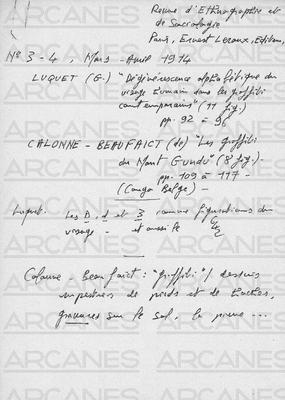 Revue d'Ethnographie et
de Sociologie
Paris, Ernest Leroux, Editeur
N° 3-4, Mars-Avril 1914
LUQUET (G.) "Dégénérescence alphabétique du
visage humain dans les graffiti
contemporains" (11 fig.)
pp. 92 à 96
CALONNE-BEAUFAICT (de) "Les graffiti
du Mont Gundu" (8 fig.).
pp. 109 à 117 -
(Congo Belge) -
Luquet. Les D, d et 3 comme figurations du
visage - et aussi le
Calonne-Beaufaict : "graffiti" % dessins
rupestres de pieds et de haches,
gravures sur le sol, la pierre ...
ARCANES